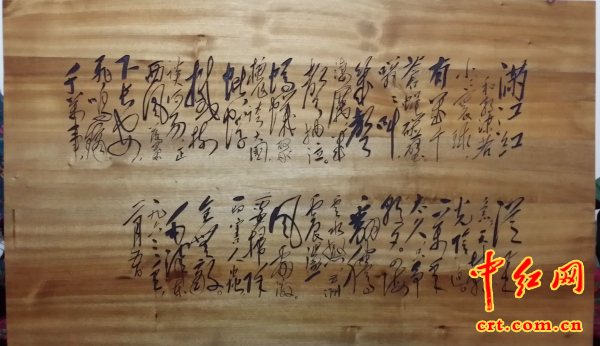 满江红
和郭沫若
小小寰球
有几个
苍蝇碰壁
嗡嗡叫
几声
凄厉几
声抽泣
蚂蚁缘
槐夸大国
蚍蜉
撼树
谈何易正
西风落叶
下长安
飞鸣镝
千万事
从来
急天地转
光阴迫
一万年
太久只争
朝夕四海
翻腾
云水怒五洲
震荡
风雷激
要扫除
一切害人虫
全无敌
毛泽东
一九六三
二月五日
中红网
crt.com.cn